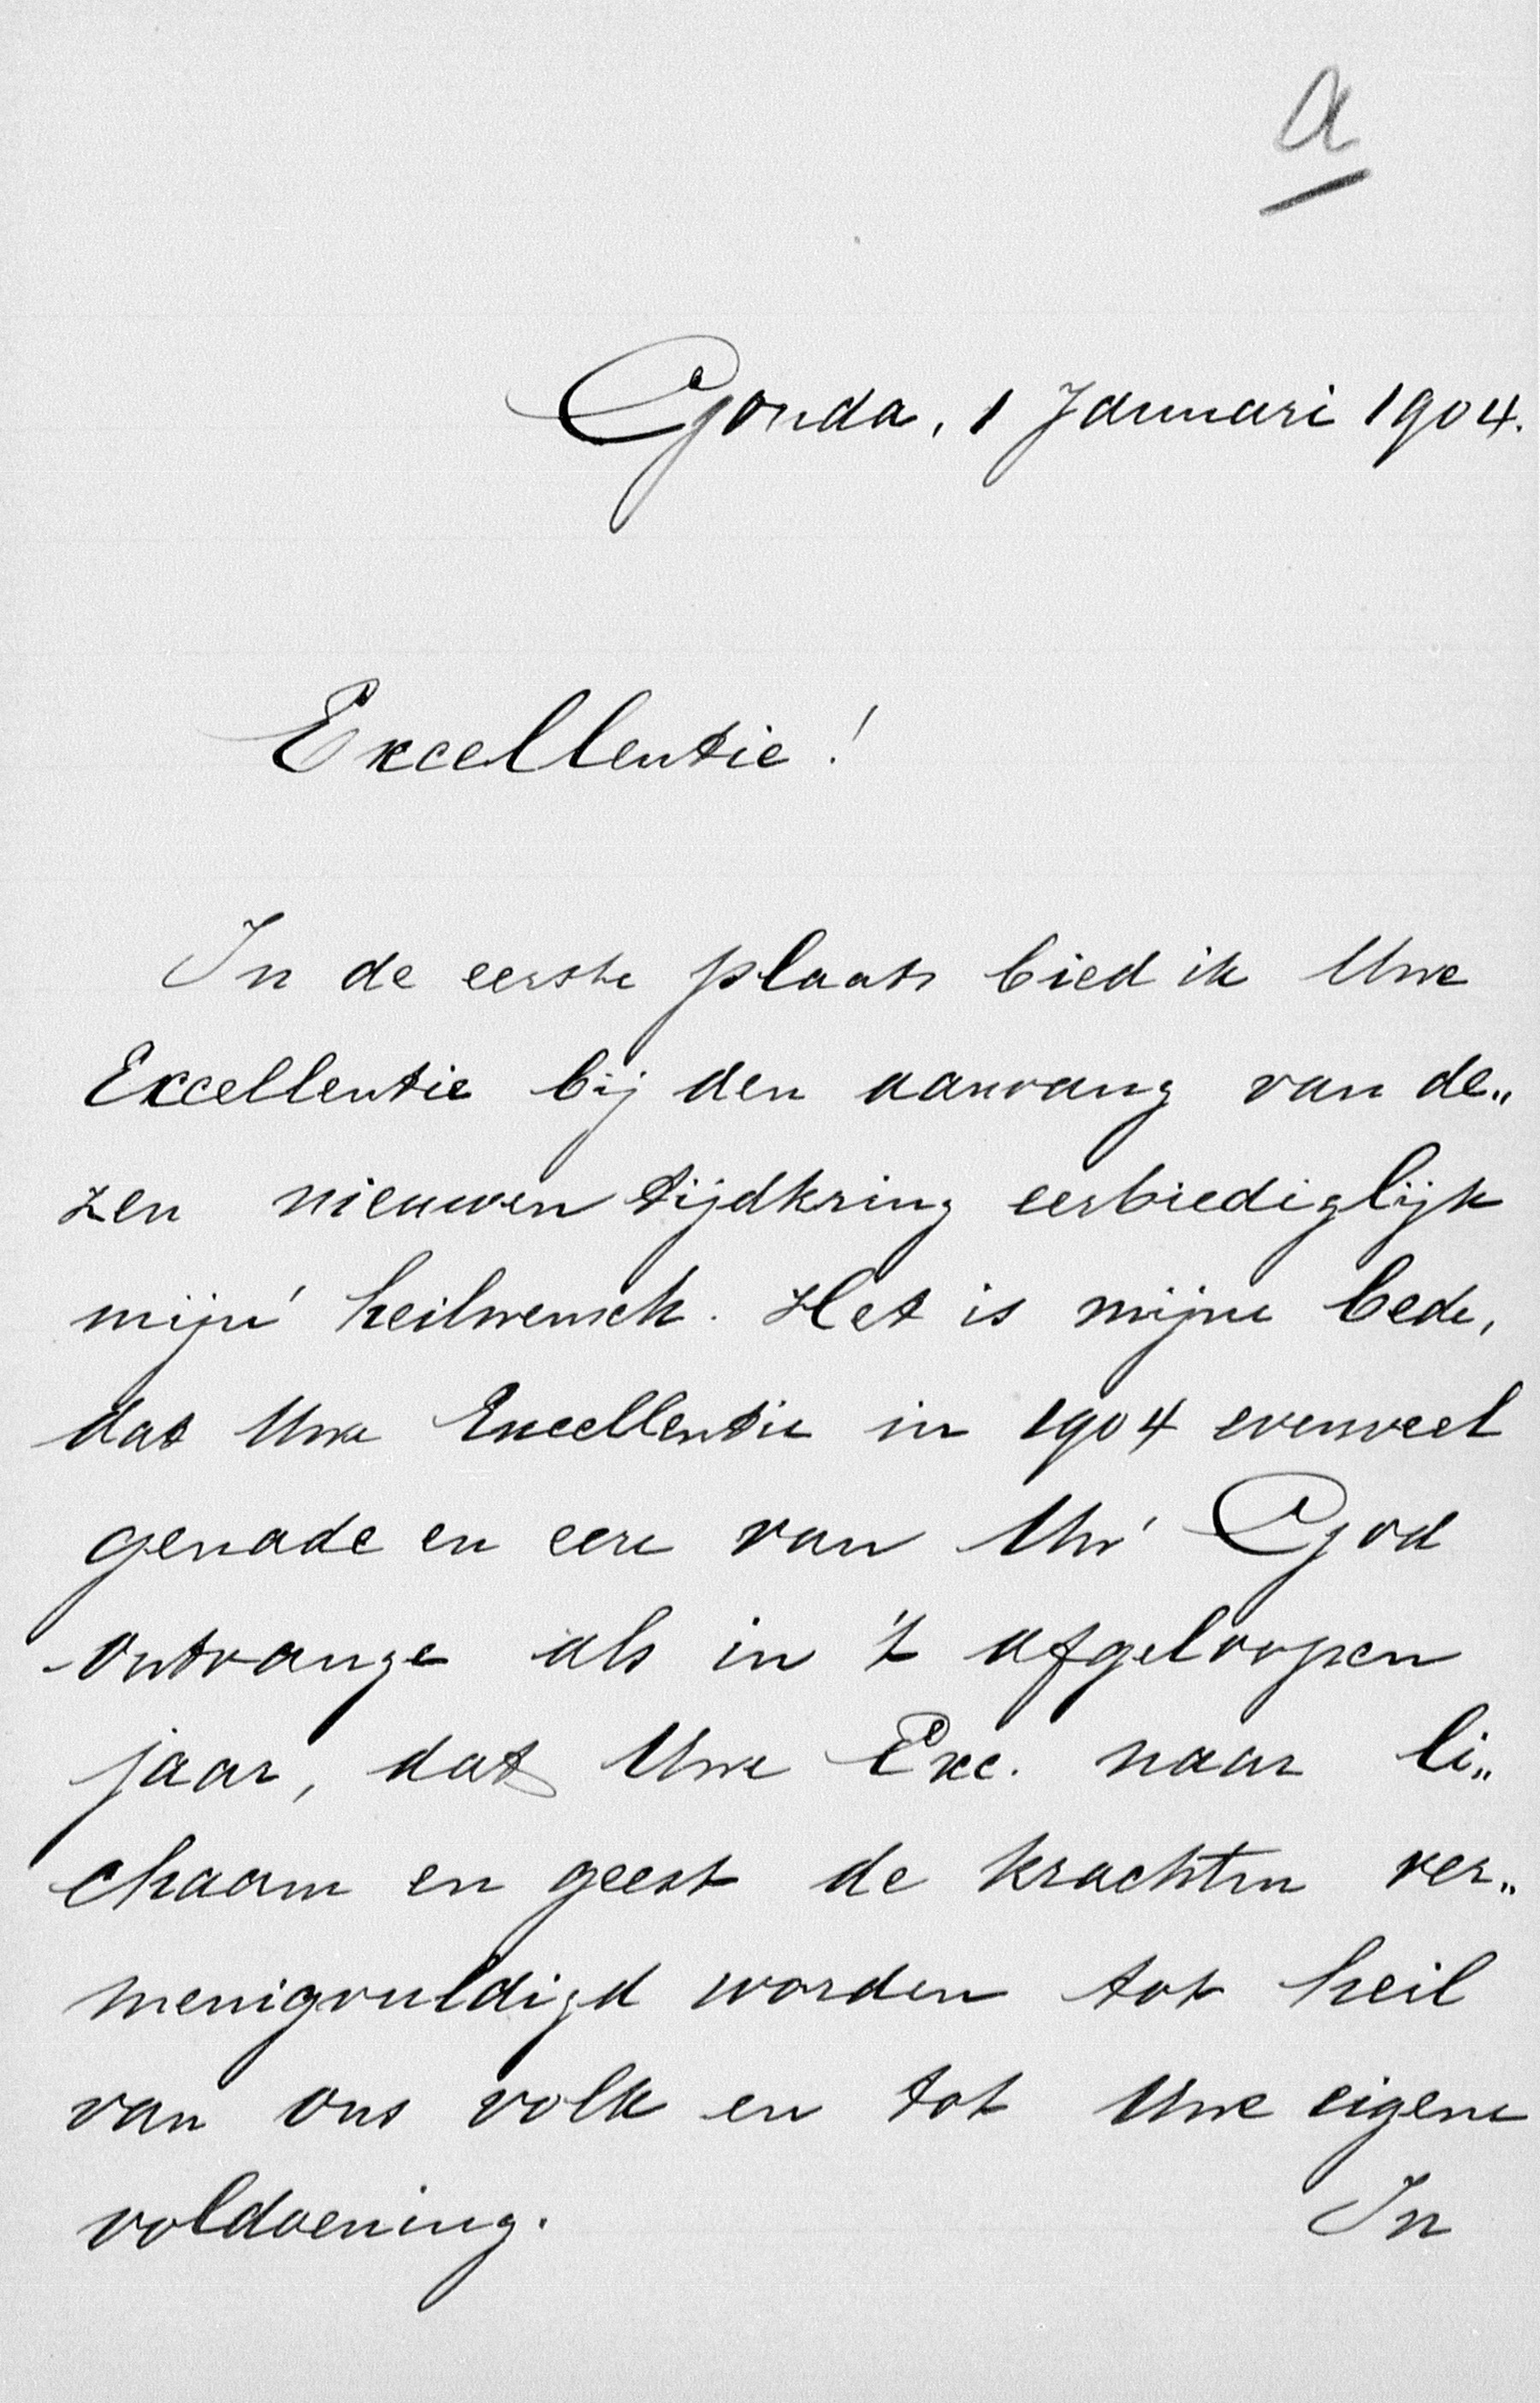 a
Gouda, 1 Januari 1904.
Excellentie!
In de eerste plaats bied ik Uwe
Excellentie bij den aanvang van de„
zen nieuwen tijdkring eerbiediglijk
mijn' heilwensch. Het is mijne bede,
dat Uwe Excellentie in 1904 evenveel
genade en eere van Uw' God
ontvange als in 't afgeloopen
jaar, dat Uwe Exc. naar li„
chaam en geest de krachten ver„
menigvuldigd worden tot heil
van ons volk en tot Uwe eigene
voldoening.
In